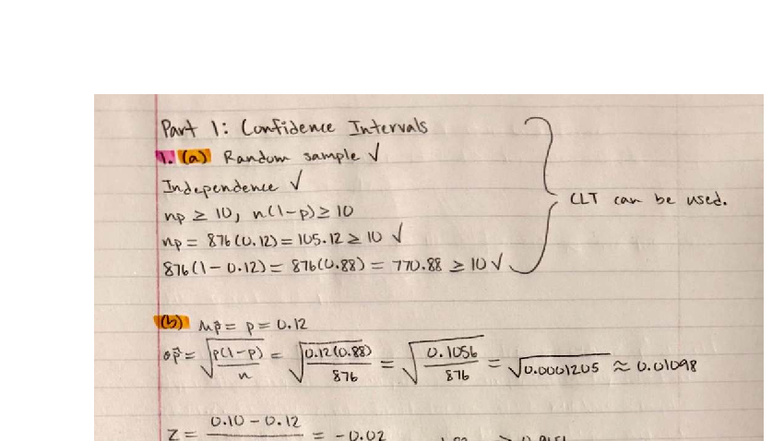 Part 1: Confidence Intervals
1. (a) Random sample ✓
Independence ✓
np ≥ 10, n(1-p) ≥ 10
np = 876(0.12) = 105.12 ≥ 10 ✓
876(1 - 0.12) = 876(0.88) = 770.88 ≥ 10 ✓
CLT can be used.
(b) μp̂ = p = 0.12
σp̂ = √(p(1-p)/n) = √(0.12(0.88)/876) = √(0.1056/876) = √0.0001205 ≈ 0.01098
Z = 0.10 - 0.12 = -0.02